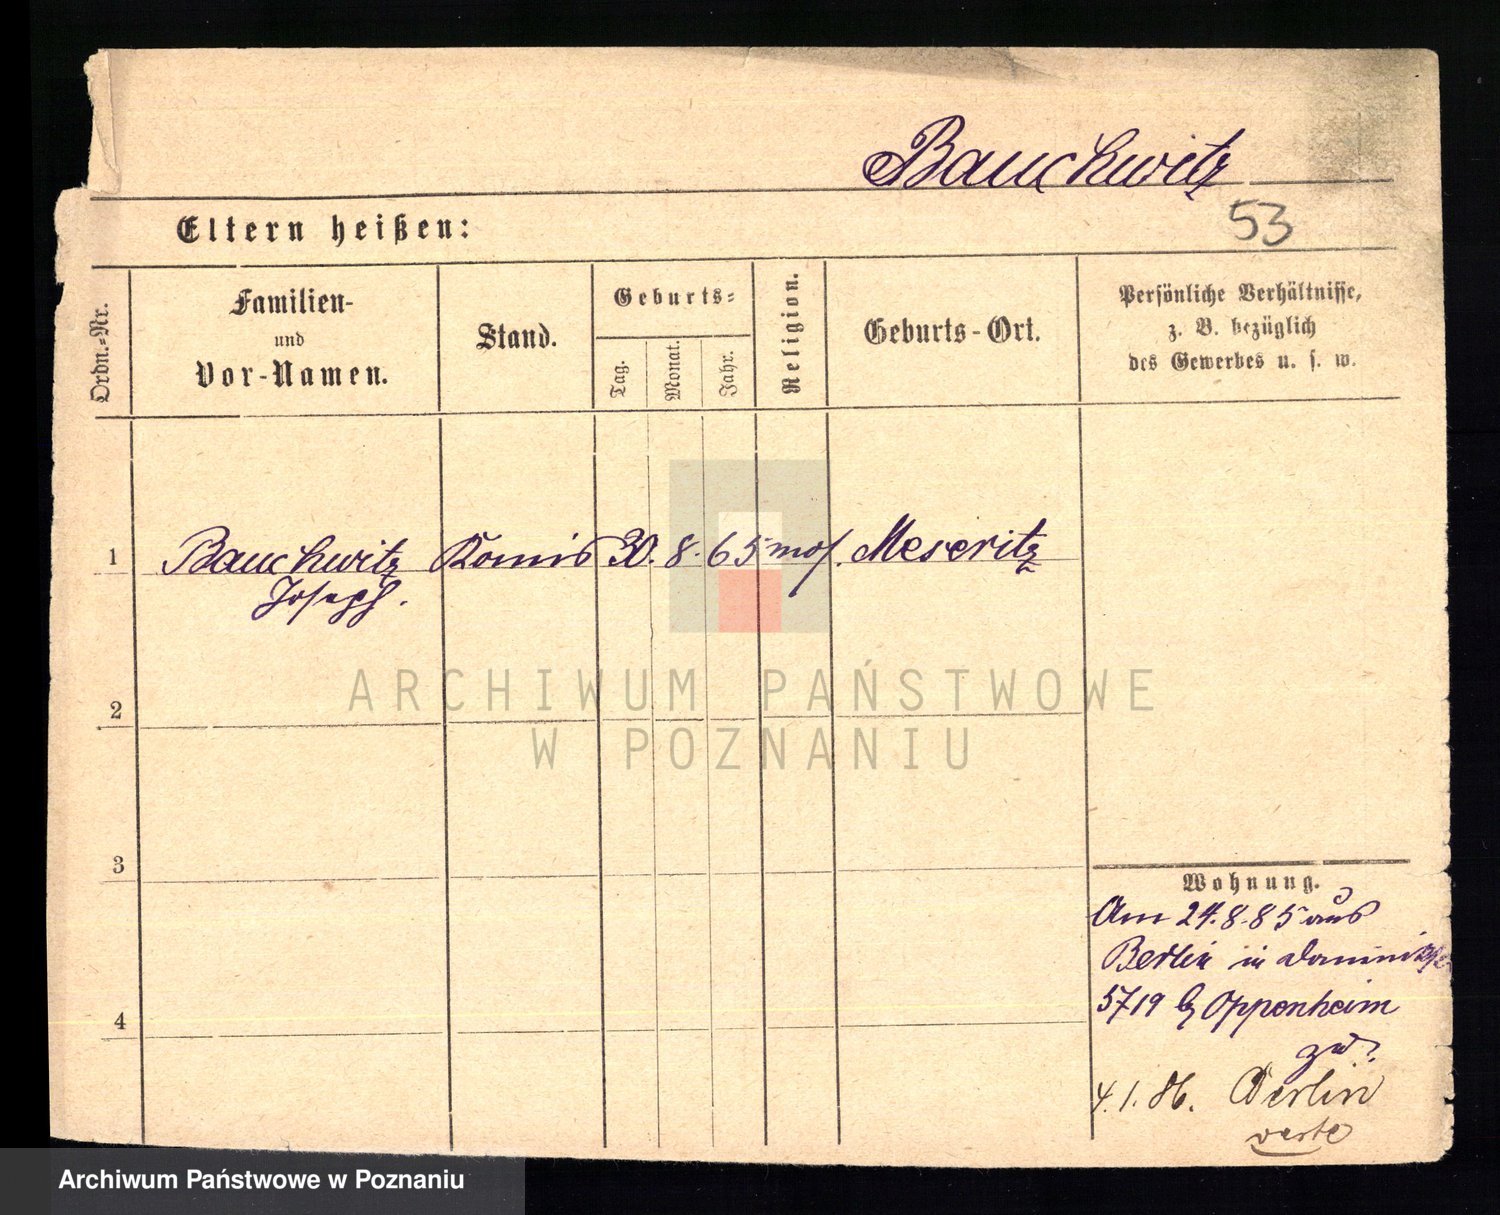 Bauchwitz
53
Eltern heißen:
Ordn.-Nr.
Familien-
und
Vor-Namen.
Stand.
Geburts-
Tag.
Monat.
Jahr.
Religion.
Geburts-Ort.
Persönliche Verhältnisse,
z. B. bezüglich
des Gewerbes u. s. w.
1 Bauchwitz Komis 30. 8. 65 mos. Meseritz
Joseph.
ARCHIWUM PAŃSTWOWE
W POZNANIU
2
3
4
Wohnung.
Am 24.8.85 aus
Berlin in
5719 Oppenheim
4.1.86. Berlin
Archiwum Państwowe w Poznaniu